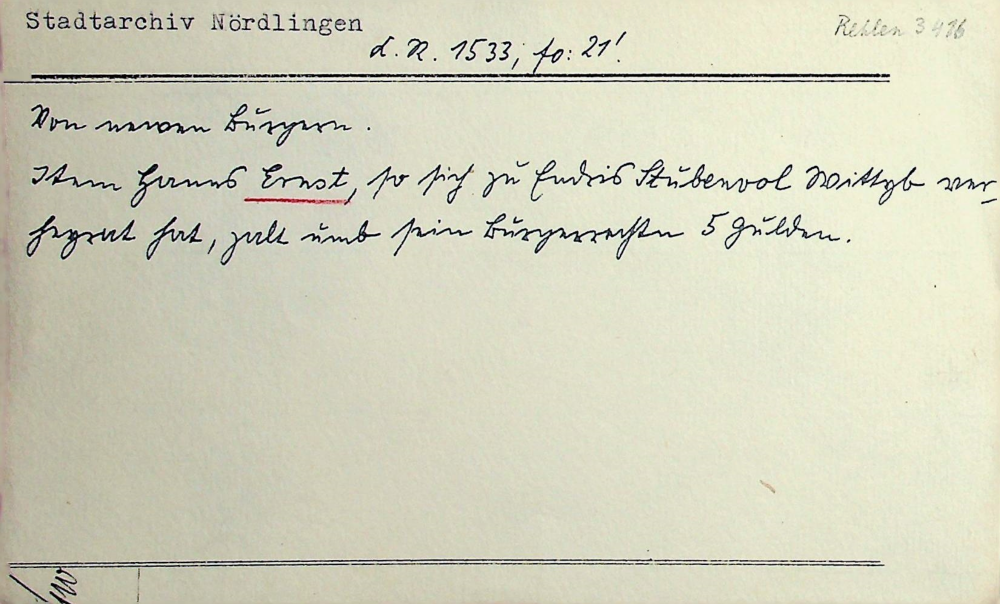 Stadtarchiv Nördlingen
Rehlen 3416
L. R. 1533, fo: 21!
Von newen Bürgern.
Item Hanns Ernst, so sich zu Endris Stübenvol Wittyb ver-
heyrat hat, zalt umb sein Bürgerrechtn 5 Gulden.